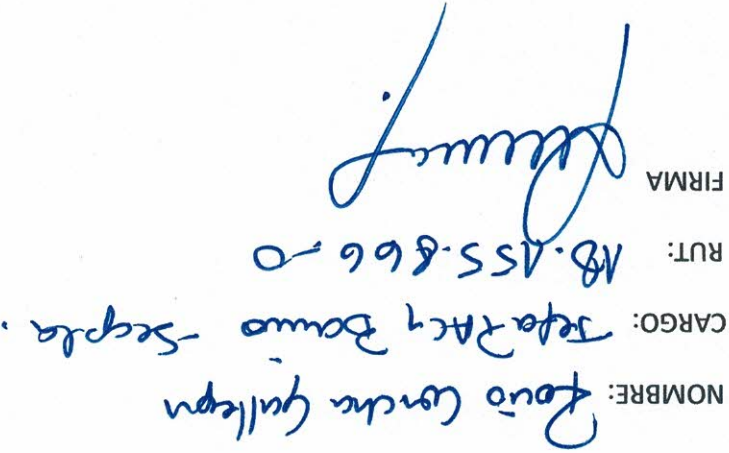 NOMBRE: Rocío Concha Gallegos
CARGO: Jefa RAC y Barrio - Secpla.
RUT: 18.155.866-0
FIRMA